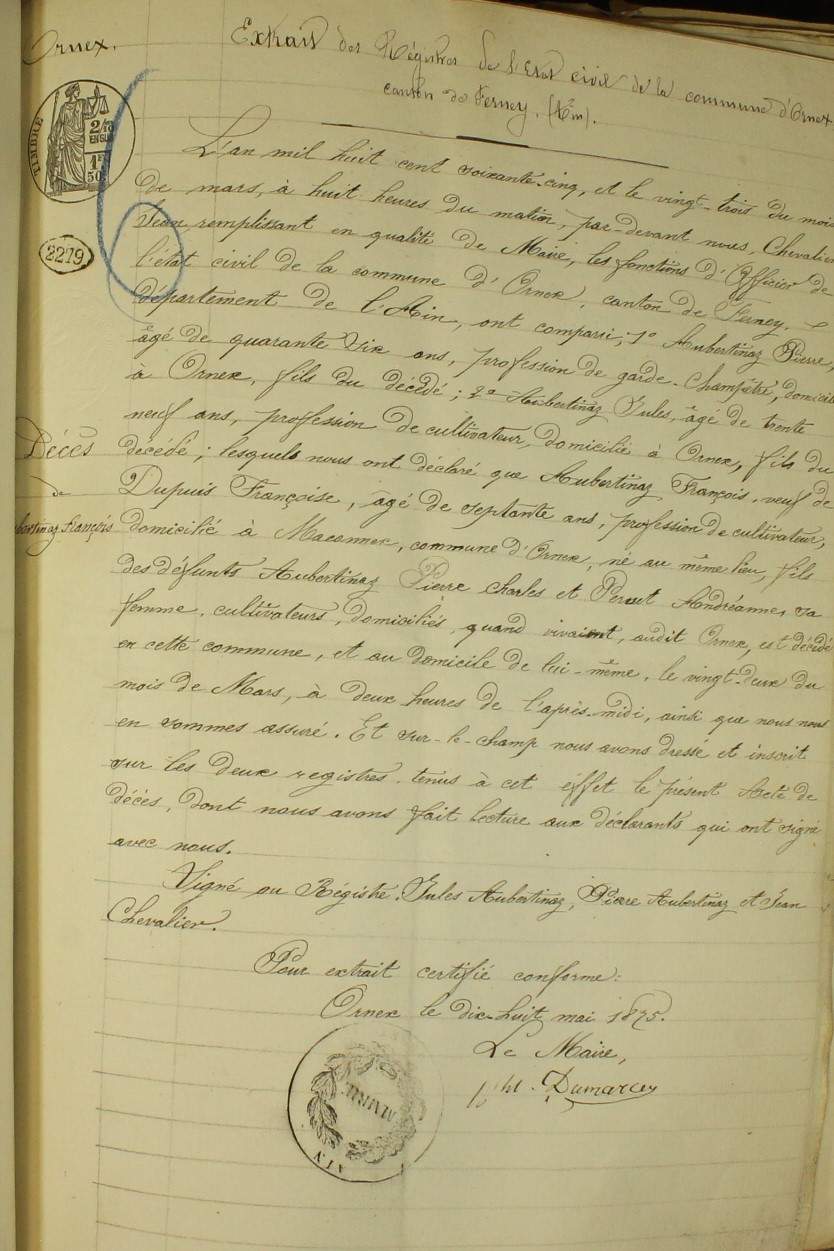 Ornex.
Extrait des Régistres de l'Etat civil de la commune d'Ornex
canton de Ferney. (Ain).
TIMBRE
2/10
EN SUS
1F
50
2279
L'an mil huit cent soixante-cinq, et le vingt-trois du mois
de mars, à huit heures du matin, par-devant nous, Chevalier
Jean, remplissant en qualité de Maire, les fonctions d'Officier de
l'état civil de la commune d'Ornex, canton de Ferney,
département de l'Ain, ont comparu; 1° Aubertinaz Pierre,
âgé de quarante six ans, profession de garde-champêtre, domicilié
à Ornex, fils du décédé; 2° Aubertinaz Jules, âgé de trente
neuf ans, profession de cultivateur, domicilié à Ornex, fils du
décédé; lesquels nous ont déclaré que Aubertinaz François, veuf de
Dupuis Françoise, âgé de septante ans, profession de cultivateur,
domicilié à Maconnex, commune d'Ornex, né au même lieu, fils
des défunts Aubertinaz Pierre Charles et Andréanne, sa
femme, cultivateurs, domiciliés, quand vivaient, audit Ornex, est décédé
en cette commune, et au domicile de lui-même, le vingt-deux du
mois de Mars, à deux heures de l'après-midi, ainsi que nous nous
en sommes assuré. Et sur-le-champ nous avons dressé et inscrit
sur les deux registres tenus à cet éffet le présent Acte de
décès, dont nous avons fait lecture aux déclarants qui ont signé
avec nous.
Décès
de
bertinaz François
Signé au Régistre. Jules Aubertinaz, Pierre Aubertinaz et Jean
Chevalier.
Pour extrait certifié conforme:
Ornex le dix-huit mai 1875.
Le Maire,
Dumarcey
AIN